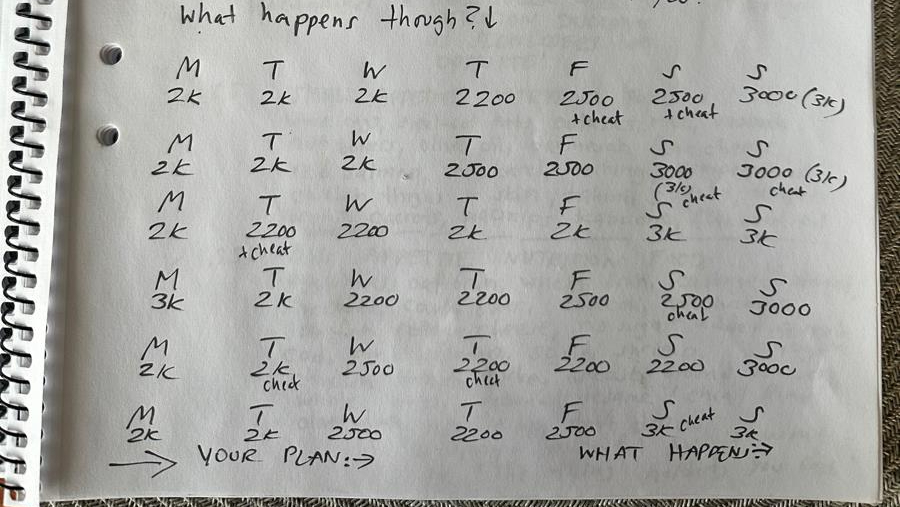 What happens though?↓
M T W T F S S
2K 2K 2K 2200 2500 2500 3000 (3K)
+cheat +cheat
M T W T F S S
2K 2K 2K 2500 2500 3000 3000 (3K)
(3K) cheat cheat
M T W T F S S
2K 2200 2200 2K 2K 3K 3K
+cheat
M T W T F S S
3K 2K 2200 2200 2500 2500 3000
cheat
M T W T F S S
2K 2K 2500 2200 2200 2200 3000
cheat cheat
M T W T F S cheat S
2K 2K 2500 2200 2500 3K 3K
→ YOUR PLAN:→ WHAT HAPPENS:→